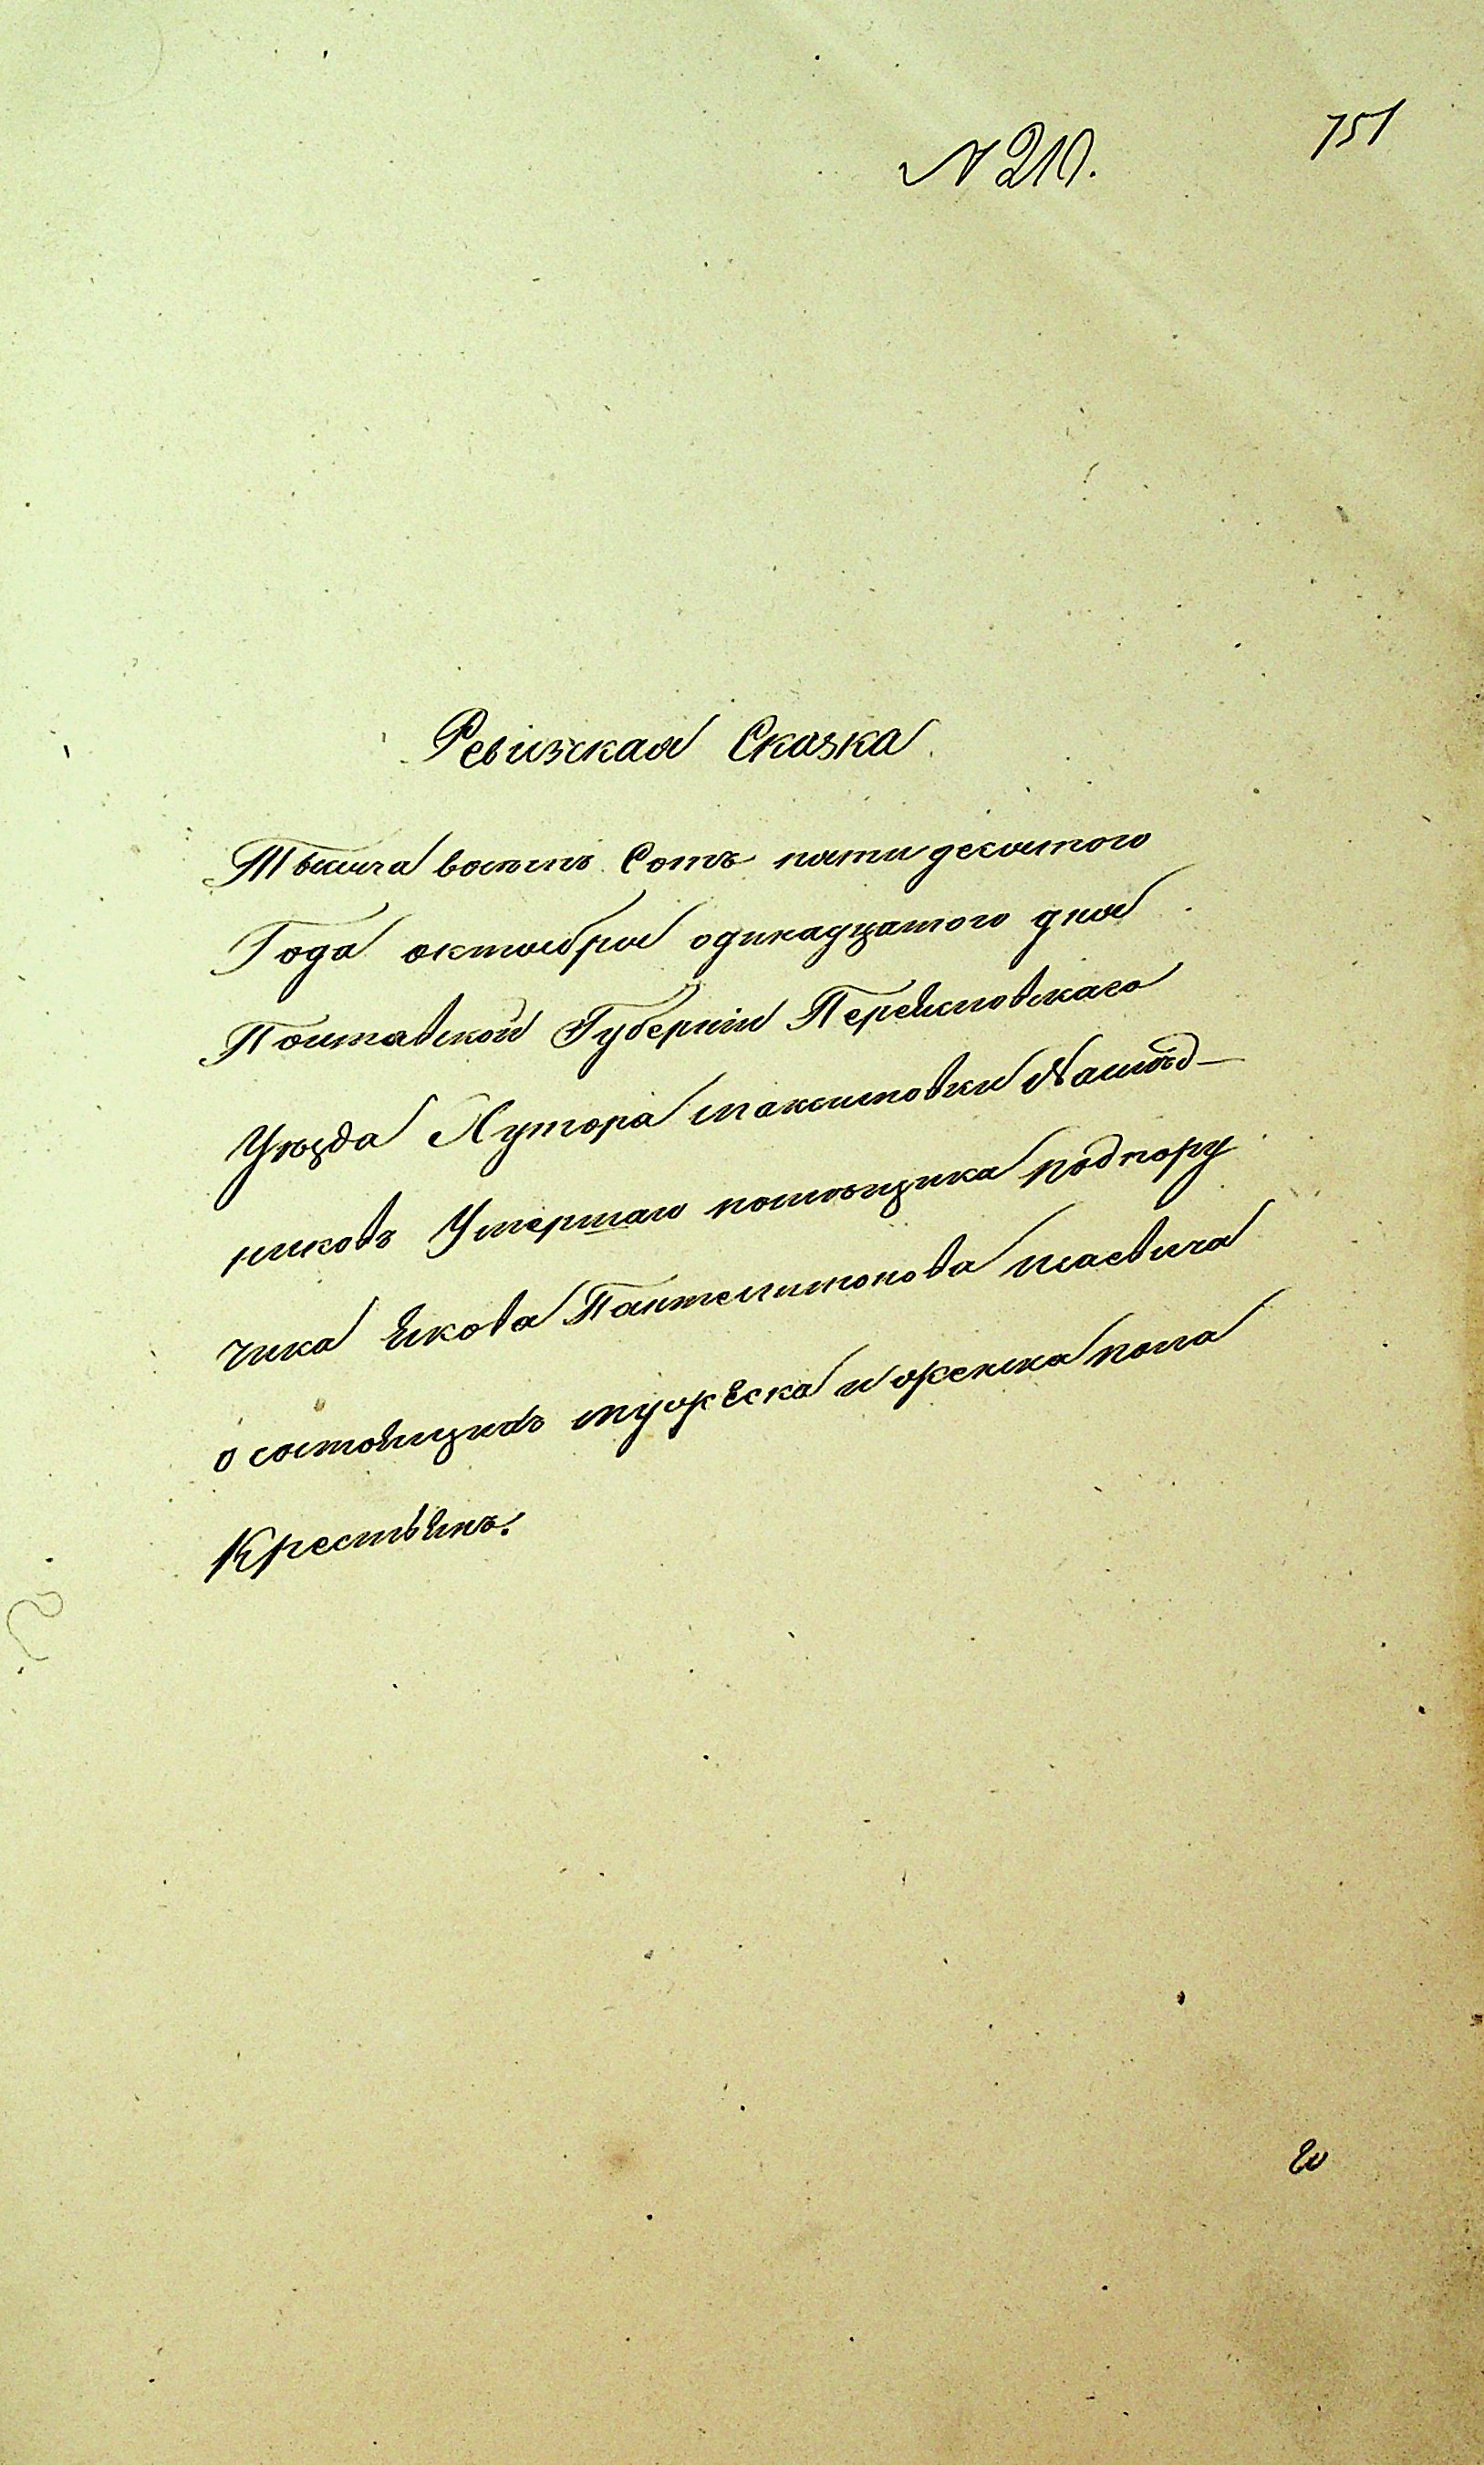 № 210.
751
Ревизская Сказка
Тысяча восемь Сотъ пятидесятого
Года октября одинадцатого дня
Полтавской Губерніи Переясловскаго
Уѣзда Хутора Максимовки Наслѣд-
никовъ Умершаго помѣщика подпору
чика Якова Пантелимонова
о состоящихъ мужеска и женска пола
Крестьянъ.